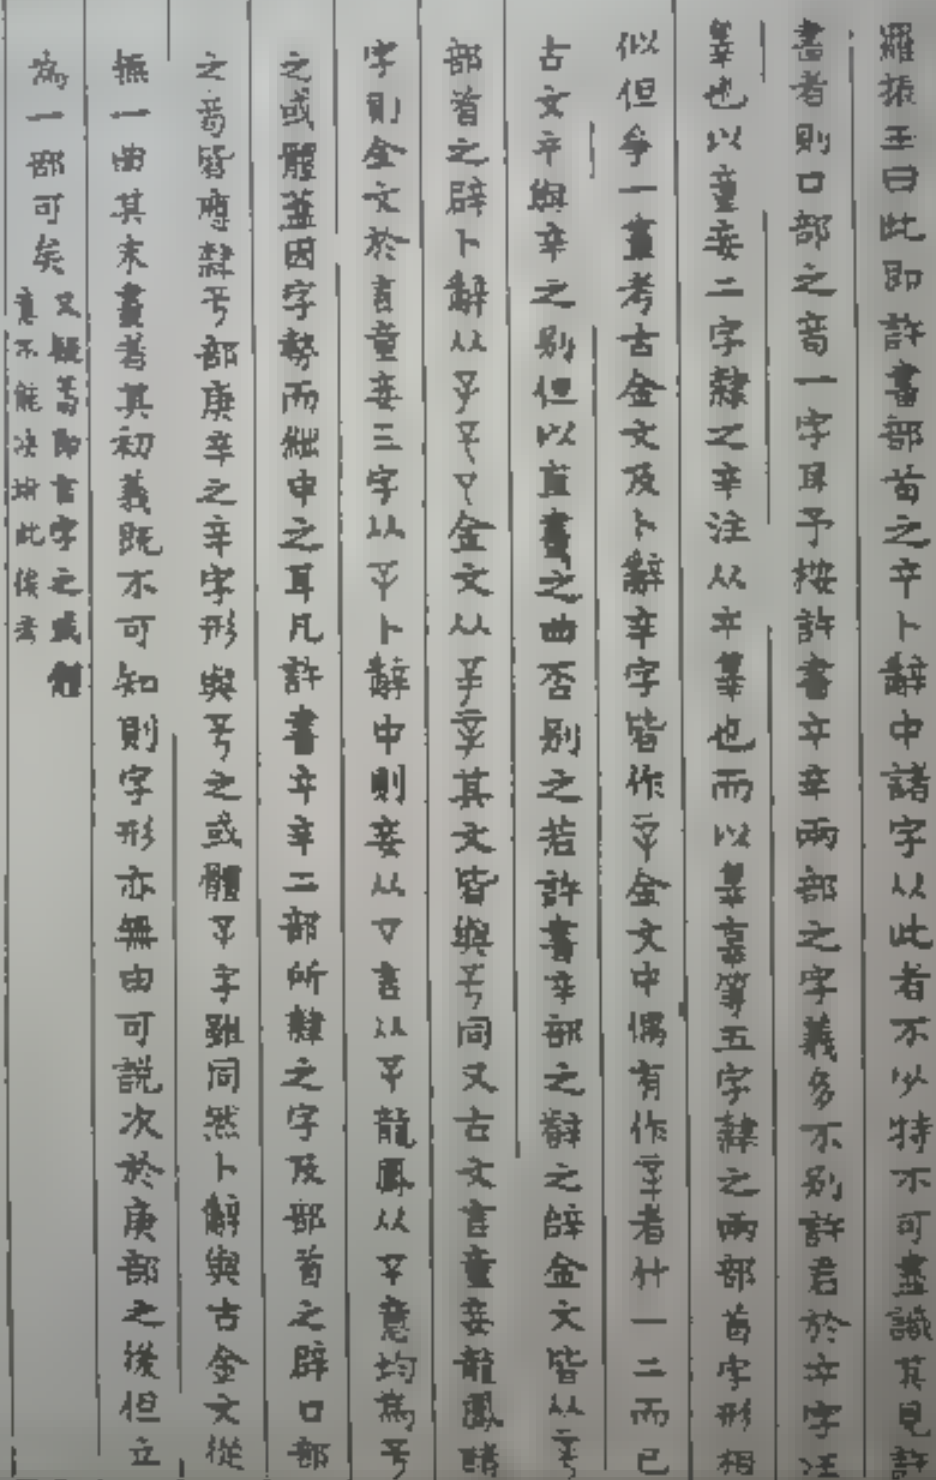 羅振玉曰此即許書部首之䇂卜辭中諸字从此者不少特不可盡識其見許
書者則口部之䇂一字耳予按許書䇂辛兩部之字義多不別許君於䇂字注
辠也以童妾二字隸之辛注从䇂辠也而以辠辜等五字隸之兩部首字形相
似但爭一畫考古金文及卜辭辛字皆作金文中偶有作者什一二而已
古文䇂與辛之別但以直畫之曲否別之若許書辛部之辭之辥金文皆从
部首之辟卜辭从金文从其文皆與同又古文言童妾龍鳳諸
字則金文於言童妾三字从卜辭中則妾从言从龍鳳从意均為
之或體蓋因字勢而絀申之耳凡許書䇂辛二部所隸之字及部首之辟口部
之皆應隸部庚辛之辛字形與之或體字雖同然卜辭與古金文從
無一曲其末畫者其初義既不可知則字形亦無由可說次於庚部之後但立
為一部可矣
又疑即言字之或體
意不能決坿此俟考